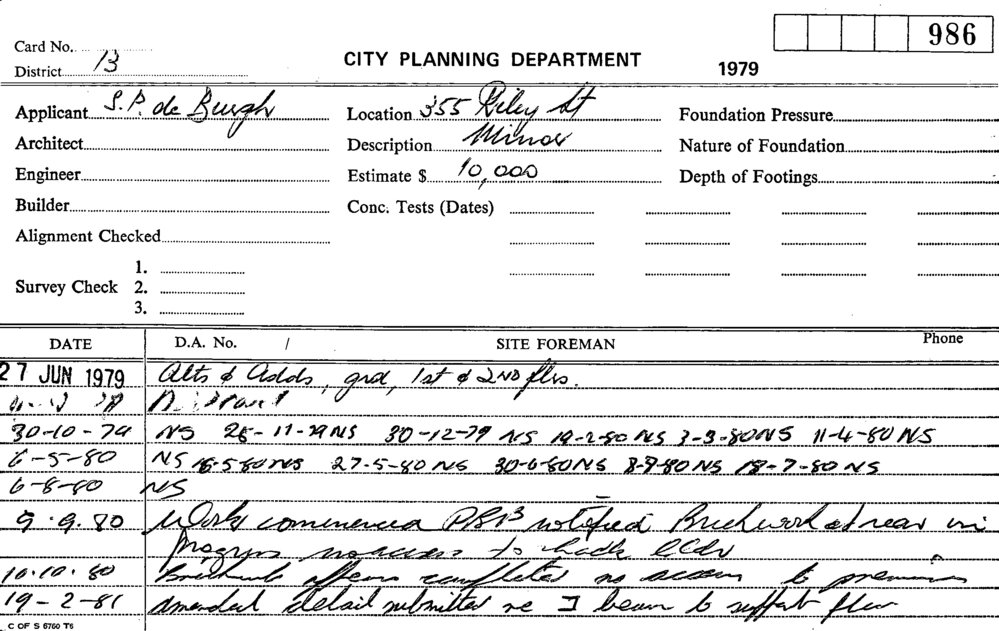 986
Card No.
District 13
CITY PLANNING DEPARTMENT
1979
Applicant S.P. de Burgh
Location 355 Riley St
Foundation Pressure
Architect
Description Minor
Nature of Foundation
Engineer
Estimate $ 10,000
Depth of Footings
Builder
Conc. Tests (Dates)
Alignment Checked
Survey Check
1.
2.
3.
DATE D.A. No. / SITE FOREMAN Phone
27 JUN 1979 Alts & Adds, grd, 1st & 2ND flrs.
30-10-79 NS 26-11-79 NS 30-12-79 NS 19-2-80 NS 3-3-80 NS 11-4-80 NS
6-5-80 NS 16-5-80 NS 27-5-80 NS 30-6-80 NS 8-7-80 NS 18-7-80 NS
6-8-80 NS
9.9.80 Work commenced notified Brickwork at rear in
progress no access to
10.10.80 Brickwork appears completed no access to premises
19-2-81 Amended detail submitted re I beam to support floor
C OF S 6760 T6